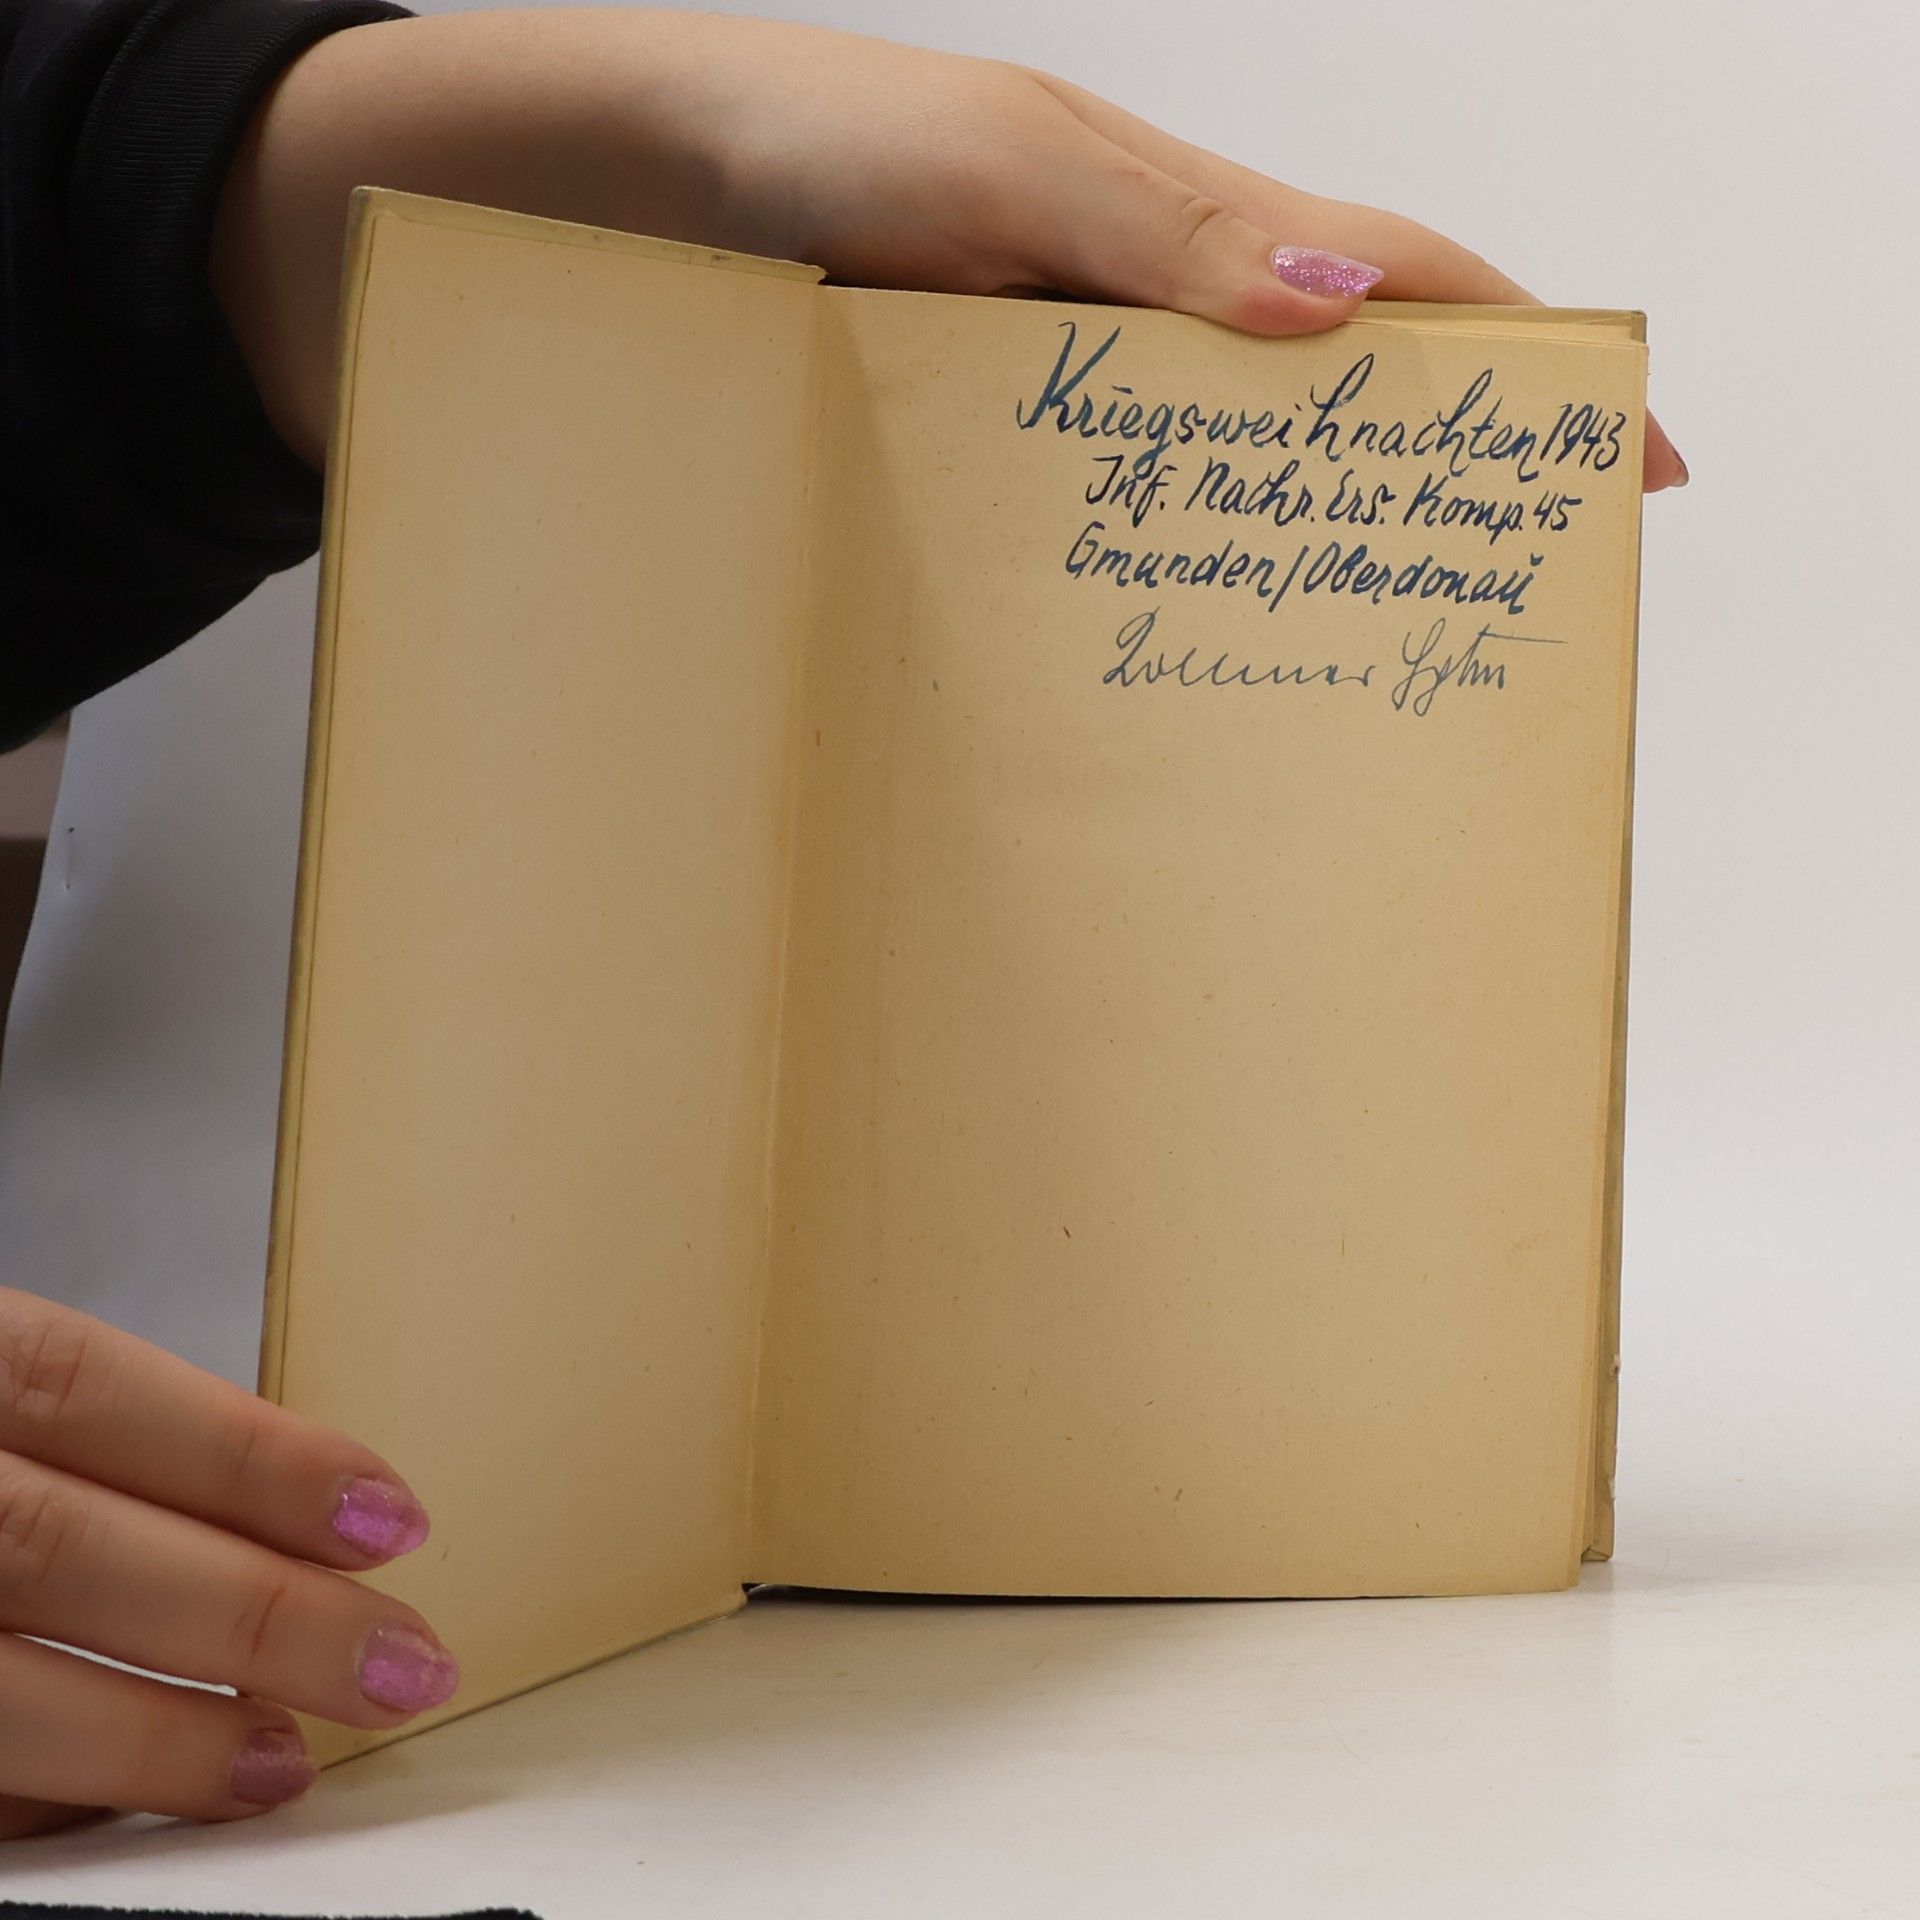 Kriegsweihnachten 1943
Inf. Nachr. Ers. Komp. 45
Gmunden/Oberdonau